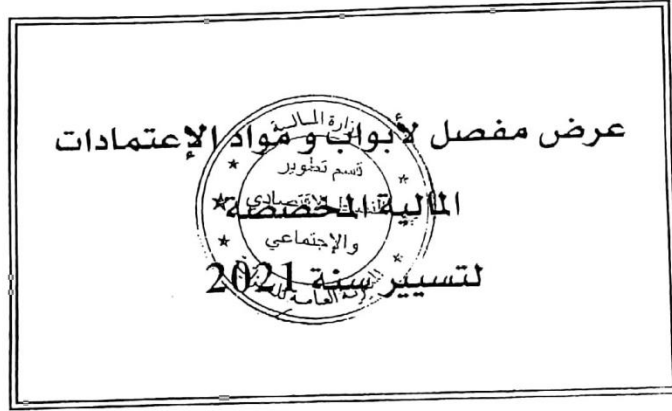 عرض مفصل لأبواب و مواد الإعتمادات
المالية المخصصة
لتسيير سنة 2021
وزارة المالية
قسم تطوير
والإجتماعي